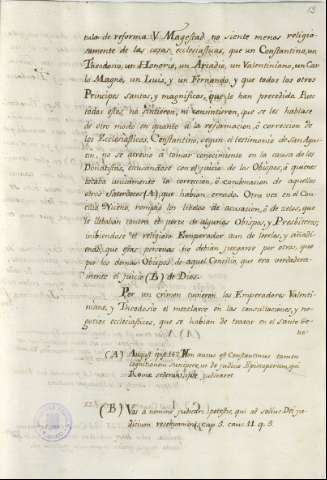 13
tulo de reforma. V. Magestad no siente menos religio-
samente de las cosas, eclesiasticas, que un Constantino, un
Theodosio, un Honorio, un Arcadio, un Valentiniano, un Car
lo Magno, un Luis, y un Fernando, y que todos los otros
Principes santos, y magnificos, que lo han precedido. Pues
todos estos, no sintieron, ni consintieron, que se les hablase
de otro modo en quanto a la reformacion, ò correccion de
los Ecclesiasticos. Constantino, segun el testimonio de San Agus
tin, no se atrebio a tomar conocimiento en la causa de los
Donatistas, escusandose con el juicio de los Obispos, á quienes
tocaba unicamente la correccion, ò condenacion de aquellos
otros Sacerdotes (A), que habian errado. Otra vez en el Con-
cilio Niceno, rompio los libelos de acusacion, ò de zelos, que
le llebaban contra de algunos Obispos, y Presbiteros,
el religioso Emperador aun de leerlos, y añadi-
endo, que estas personas no debian juzgarse por otros, que
por los demas Obispos de aquel Concilio, que era verdadera-
mente el juicio (B) de Dios.
Por un crimen tuvieron los Emperadores Valenti-
niano, y Theodosio el mezclarse en las consultaciones, y ne-
gocios eclesiasticos, que se habian de tratar en el Santo
no
(A) August. epist. 162. Non ausus est Constantinus tamen
cognitionem suscipere, ut de judicio Episcoporum, qui
Romæ sederant, judicaret.
(B) Vos à nemine judicari potestis, qui ad solius Dei ju-
dicium reservamini, cap. 5. caus. 11. q. 3.